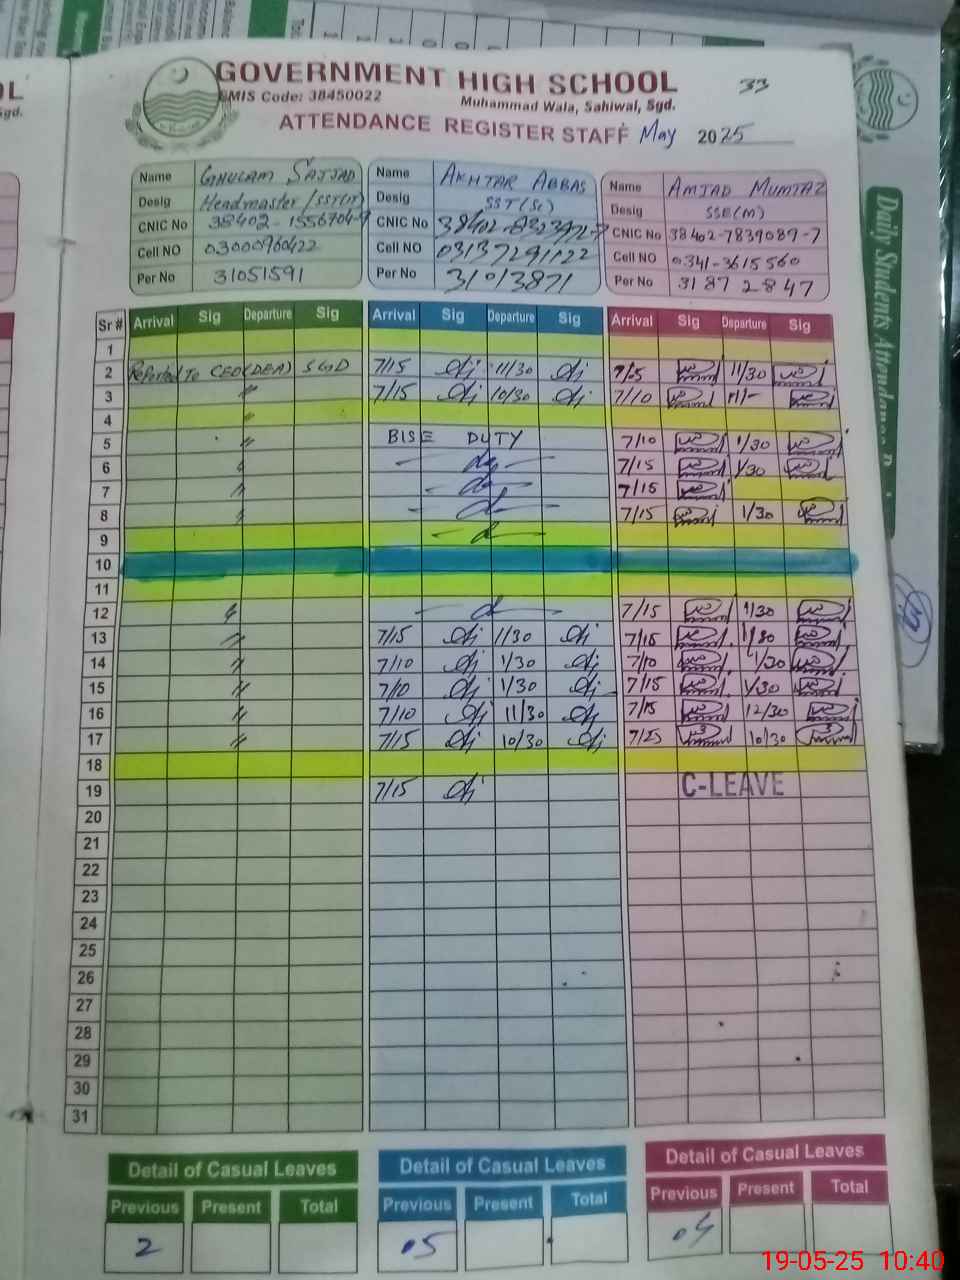 GOVERNMENT HIGH SCHOOL
EMIS Code: 38450022
Muhammad Wala, Sahiwal, Sgd.
33
ATTENDANCE REGISTER STAFF May 2025
Name GHULAM SAJJAD
Desig Headmaster/SST(IT)
CNIC No 38402-1556704-9
Cell NO 03000960422
Per No 31051591
Name AKHTAR ABBAS
Desig SST(Sc)
CNIC No 38402-
Cell NO 03137291122
Per No 31013871
Name AMJAD MUMTAZ
Desig SSE(M)
CNIC No 38402-7839089-7
Cell NO 0341-3615560
Per No 31872847
Sr # Arrival Sig Departure Sig Arrival Sig Departure Sig Arrival Sig Departure Sig
1
2 Reported To CEO(DEA) SGD 7/15 11/30 11/30
3 " 7/15 10/30 7/10
4 "
5 " BISE DUTY 7/10 1/30
6 7/15 1/30
7 " 7/15
8 7/15 1/30
9
10
11
12 7/15 1/30
13 " 7/15 1/30 7/15
14 " 7/10 1/30 7/10 1/30
15 " 7/10 1/30 7/15 1/30
16 " 7/10 11/30 7/15 12/30
17 " 7/15 10/30 7/25 10/30
18
19 7/15 C-LEAVE
20
21
22
23
24
25
26
27
28
29
30
31
Detail of Casual Leaves Detail of Casual Leaves Detail of Casual Leaves
Previous Present Total Previous Present Total Previous Present Total
2 05 04
Daily Students Attendance
19-05-25 10:40